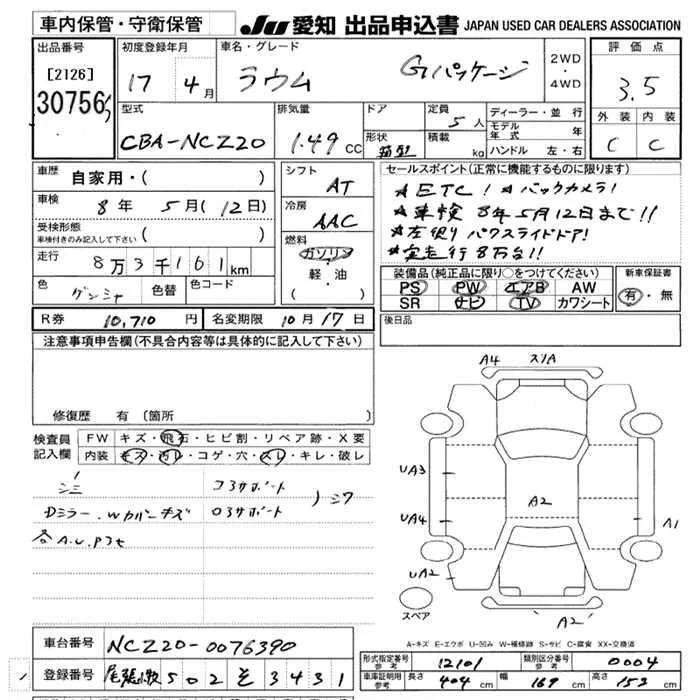 車内保管・守衛保管 JU 愛知 出品申込書 JAPAN USED CAR DEALERS ASSOCIATION
出品番号 初度登録年月 車名・グレード 評価点
[2126] 17 4月 ラウム Gパッケージ 2WD・4WD 3.5
30756
型式 排気量 ドア 定員 5人 ディーラー・並行 外装 内装
CBA-NCZ20 1.49CC 形状 箱型 積載 kg モデル年式 年 ハンドル 左・右 C C
車歴 自家用・( ) シフト AT セールスポイント(正常に機能するものに限ります)
★ETC! ★バックカメラ!
車検 8年5月(12日) 冷房 AAC ★車検 8年5月12日まで!!
受検形態 ( )
車検付きのみ記入して下さい
★左側りパワスライドドア!
走行 8万3千161km 燃料 ガソリン・軽・油 ( ) ★実走行8万台!!
色 ゲンシャ 色替 色コード
装備品(純正品に限り○をつけてください) 新車保証書
PS PW エアB AW 有・無
SR ナビ TV カワシート
R券 10,710円 名変期限 10月17日 後日品
注意事項申告欄(不具合内容等は具体的に記入して下さい)
修復歴 有〔箇所
検査員記入欄 FW キズ・飛石・ヒビ割・リペア跡・X要
内装 キズ・汚レ・コゲ・穴・スレ・キレ・破レ
シミ コラサポート シワ
Dミラー.Wカバーキズ ロラサポート
各A.U.P3せ
A4 スリA
UA3
A2
UA4 A1
UA2
スペア A2
A-キズ E-エクボ U-凹み W-補修跡 S-サビ C-腐食 XX-交換済
車台番号 NCZ20-0076390
登録番号 尾張小牧 502 そ 3431
形式指定番号 参考 12101 類別区分番号 参考 0004
車庫証明用 参考 長さ 404cm 幅 169cm 高さ 153cm